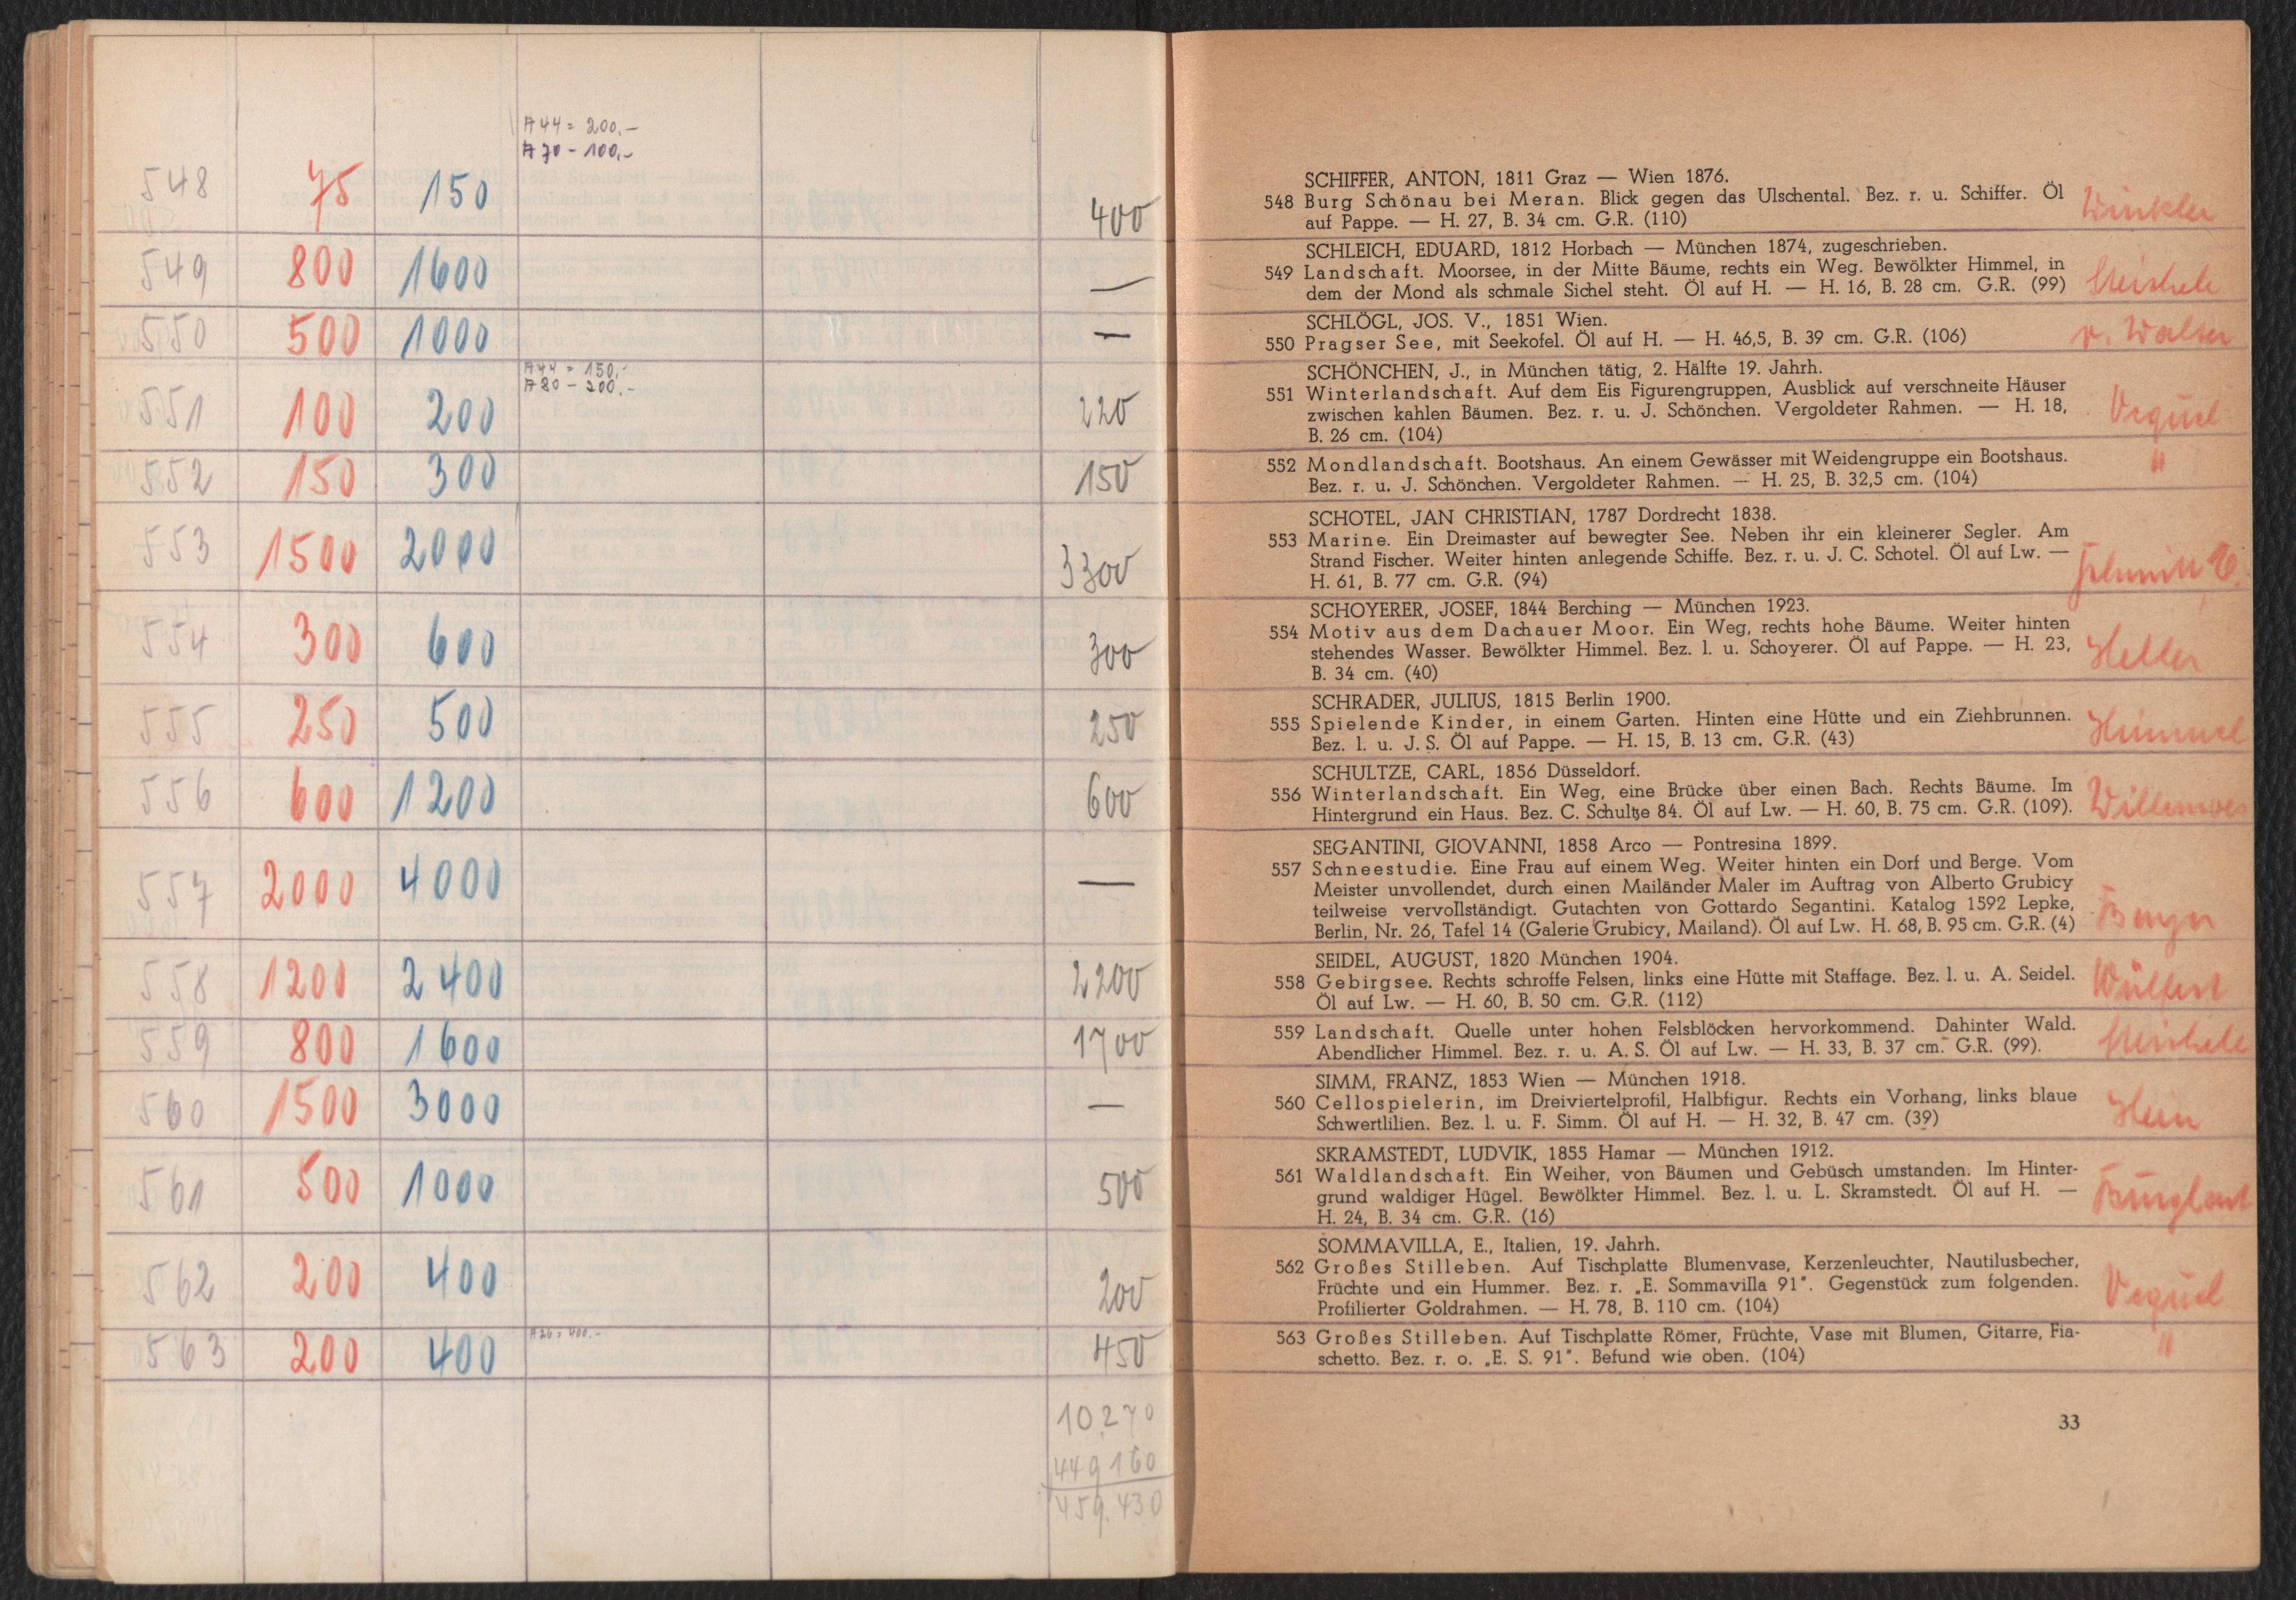 A44 = 200.-
A70 - 100.-
548 75 150 400
549 800 1600 —
550 500 1000 —
A44 = 150.-
A80 - 200.-
551 100 200 220
552 150 300 150
553 1500 2000 3300
554 300 600 300
555 250 500 250
556 600 1200 600
557 2000 4000 —
558 1200 2400 2200
559 800 1600 1700
560 1500 3000 —
561 500 1000 500
562 200 400 200
A26 = 400.-
563 200 400 450
10.270
449 160
459.430
SCHIFFER, ANTON, 1811 Graz — Wien 1876.
548 Burg Schönau bei Meran. Blick gegen das Ulschental. Bez. r. u. Schiffer. Öl
auf Pappe. — H. 27, B. 34 cm. G.R. (110)
Winkler
SCHLEICH, EDUARD, 1812 Horbach — München 1874, zugeschrieben.
549 Landschaft. Moorsee, in der Mitte Bäume, rechts ein Weg. Bewölkter Himmel, in
dem der Mond als schmale Sichel steht. Öl auf H. — H. 16, B. 28 cm. G.R. (99)
SCHLÖGL, JOS. V., 1851 Wien.
550 Pragser See, mit Seekofel. Öl auf H. — H. 46,5, B. 39 cm. G.R. (106)
v. Walter
SCHÖNCHEN, J., in München tätig, 2. Hälfte 19. Jahrh.
551 Winterlandschaft. Auf dem Eis Figurengruppen, Ausblick auf verschneite Häuser
zwischen kahlen Bäumen. Bez. r. u. J. Schönchen. Vergoldeter Rahmen. — H. 18,
B. 26 cm. (104)
Vequel
552 Mondlandschaft. Bootshaus. An einem Gewässer mit Weidengruppe ein Bootshaus.
Bez. r. u. J. Schönchen. Vergoldeter Rahmen. — H. 25, B. 32,5 cm. (104)
"
SCHOTEL, JAN CHRISTIAN, 1787 Dordrecht 1838.
553 Marine. Ein Dreimaster auf bewegter See. Neben ihr ein kleinerer Segler. Am
Strand Fischer. Weiter hinten anlegende Schiffe. Bez. r. u. J. C. Schotel. Öl auf Lw. —
H. 61, B. 77 cm. G.R. (94)
SCHOYERER, JOSEF, 1844 Berching — München 1923.
554 Motiv aus dem Dachauer Moor. Ein Weg, rechts hohe Bäume. Weiter hinten
stehendes Wasser. Bewölkter Himmel. Bez. l. u. Schoyerer. Öl auf Pappe. — H. 23,
B. 34 cm. (40)
Heller
SCHRADER, JULIUS, 1815 Berlin 1900.
555 Spielende Kinder, in einem Garten. Hinten eine Hütte und ein Ziehbrunnen.
Bez. l. u. J. S. Öl auf Pappe. — H. 15, B. 13 cm. G.R. (43)
Himmel
SCHULTZE, CARL, 1856 Düsseldorf.
556 Winterlandschaft. Ein Weg, eine Brücke über einen Bach. Rechts Bäume. Im
Hintergrund ein Haus. Bez. C. Schultze 84. Öl auf Lw. — H. 60, B. 75 cm. G.R. (109).
SEGANTINI, GIOVANNI, 1858 Arco — Pontresina 1899.
557 Schneestudie. Eine Frau auf einem Weg. Weiter hinten ein Dorf und Berge. Vom
Meister unvollendet, durch einen Mailänder Maler im Auftrag von Alberto Grubicy
teilweise vervollständigt. Gutachten von Gottardo Segantini. Katalog 1592 Lepke,
Berlin, Nr. 26, Tafel 14 (Galerie Grubicy, Mailand). Öl auf Lw. H. 68, B. 95 cm. G.R. (4)
SEIDEL, AUGUST, 1820 München 1904.
558 Gebirgsee. Rechts schroffe Felsen, links eine Hütte mit Staffage. Bez. l. u. A. Seidel.
Öl auf Lw. — H. 60, B. 50 cm. G.R. (112)
559 Landschaft. Quelle unter hohen Felsblöcken hervorkommend. Dahinter Wald.
Abendlicher Himmel. Bez. r. u. A. S. Öl auf Lw. — H. 33, B. 37 cm. G.R. (99).
SIMM, FRANZ, 1853 Wien — München 1918.
560 Cellospielerin, im Dreiviertelprofil, Halbfigur. Rechts ein Vorhang, links blaue
Schwertlilien. Bez. l. u. F. Simm. Öl auf H. — H. 32, B. 47 cm. (39)
SKRAMSTEDT, LUDVIK, 1855 Hamar — München 1912.
561 Waldlandschaft. Ein Weiher, von Bäumen und Gebüsch umstanden. Im Hinter-
grund waldiger Hügel. Bewölkter Himmel. Bez. l. u. L. Skramstedt. Öl auf H. —
H. 24, B. 34 cm. G.R. (16)
SOMMAVILLA, E., Italien, 19. Jahrh.
562 Großes Stilleben. Auf Tischplatte Blumenvase, Kerzenleuchter, Nautilusbecher,
Früchte und ein Hummer. Bez. r. „E. Sommavilla 91". Gegenstück zum folgenden.
Profilierter Goldrahmen. — H. 78, B. 110 cm. (104)
Vequel
563 Großes Stilleben. Auf Tischplatte Römer, Früchte, Vase mit Blumen, Gitarre, Fia-
schetto. Bez. r. o. „E. S. 91". Befund wie oben. (104)
"
33